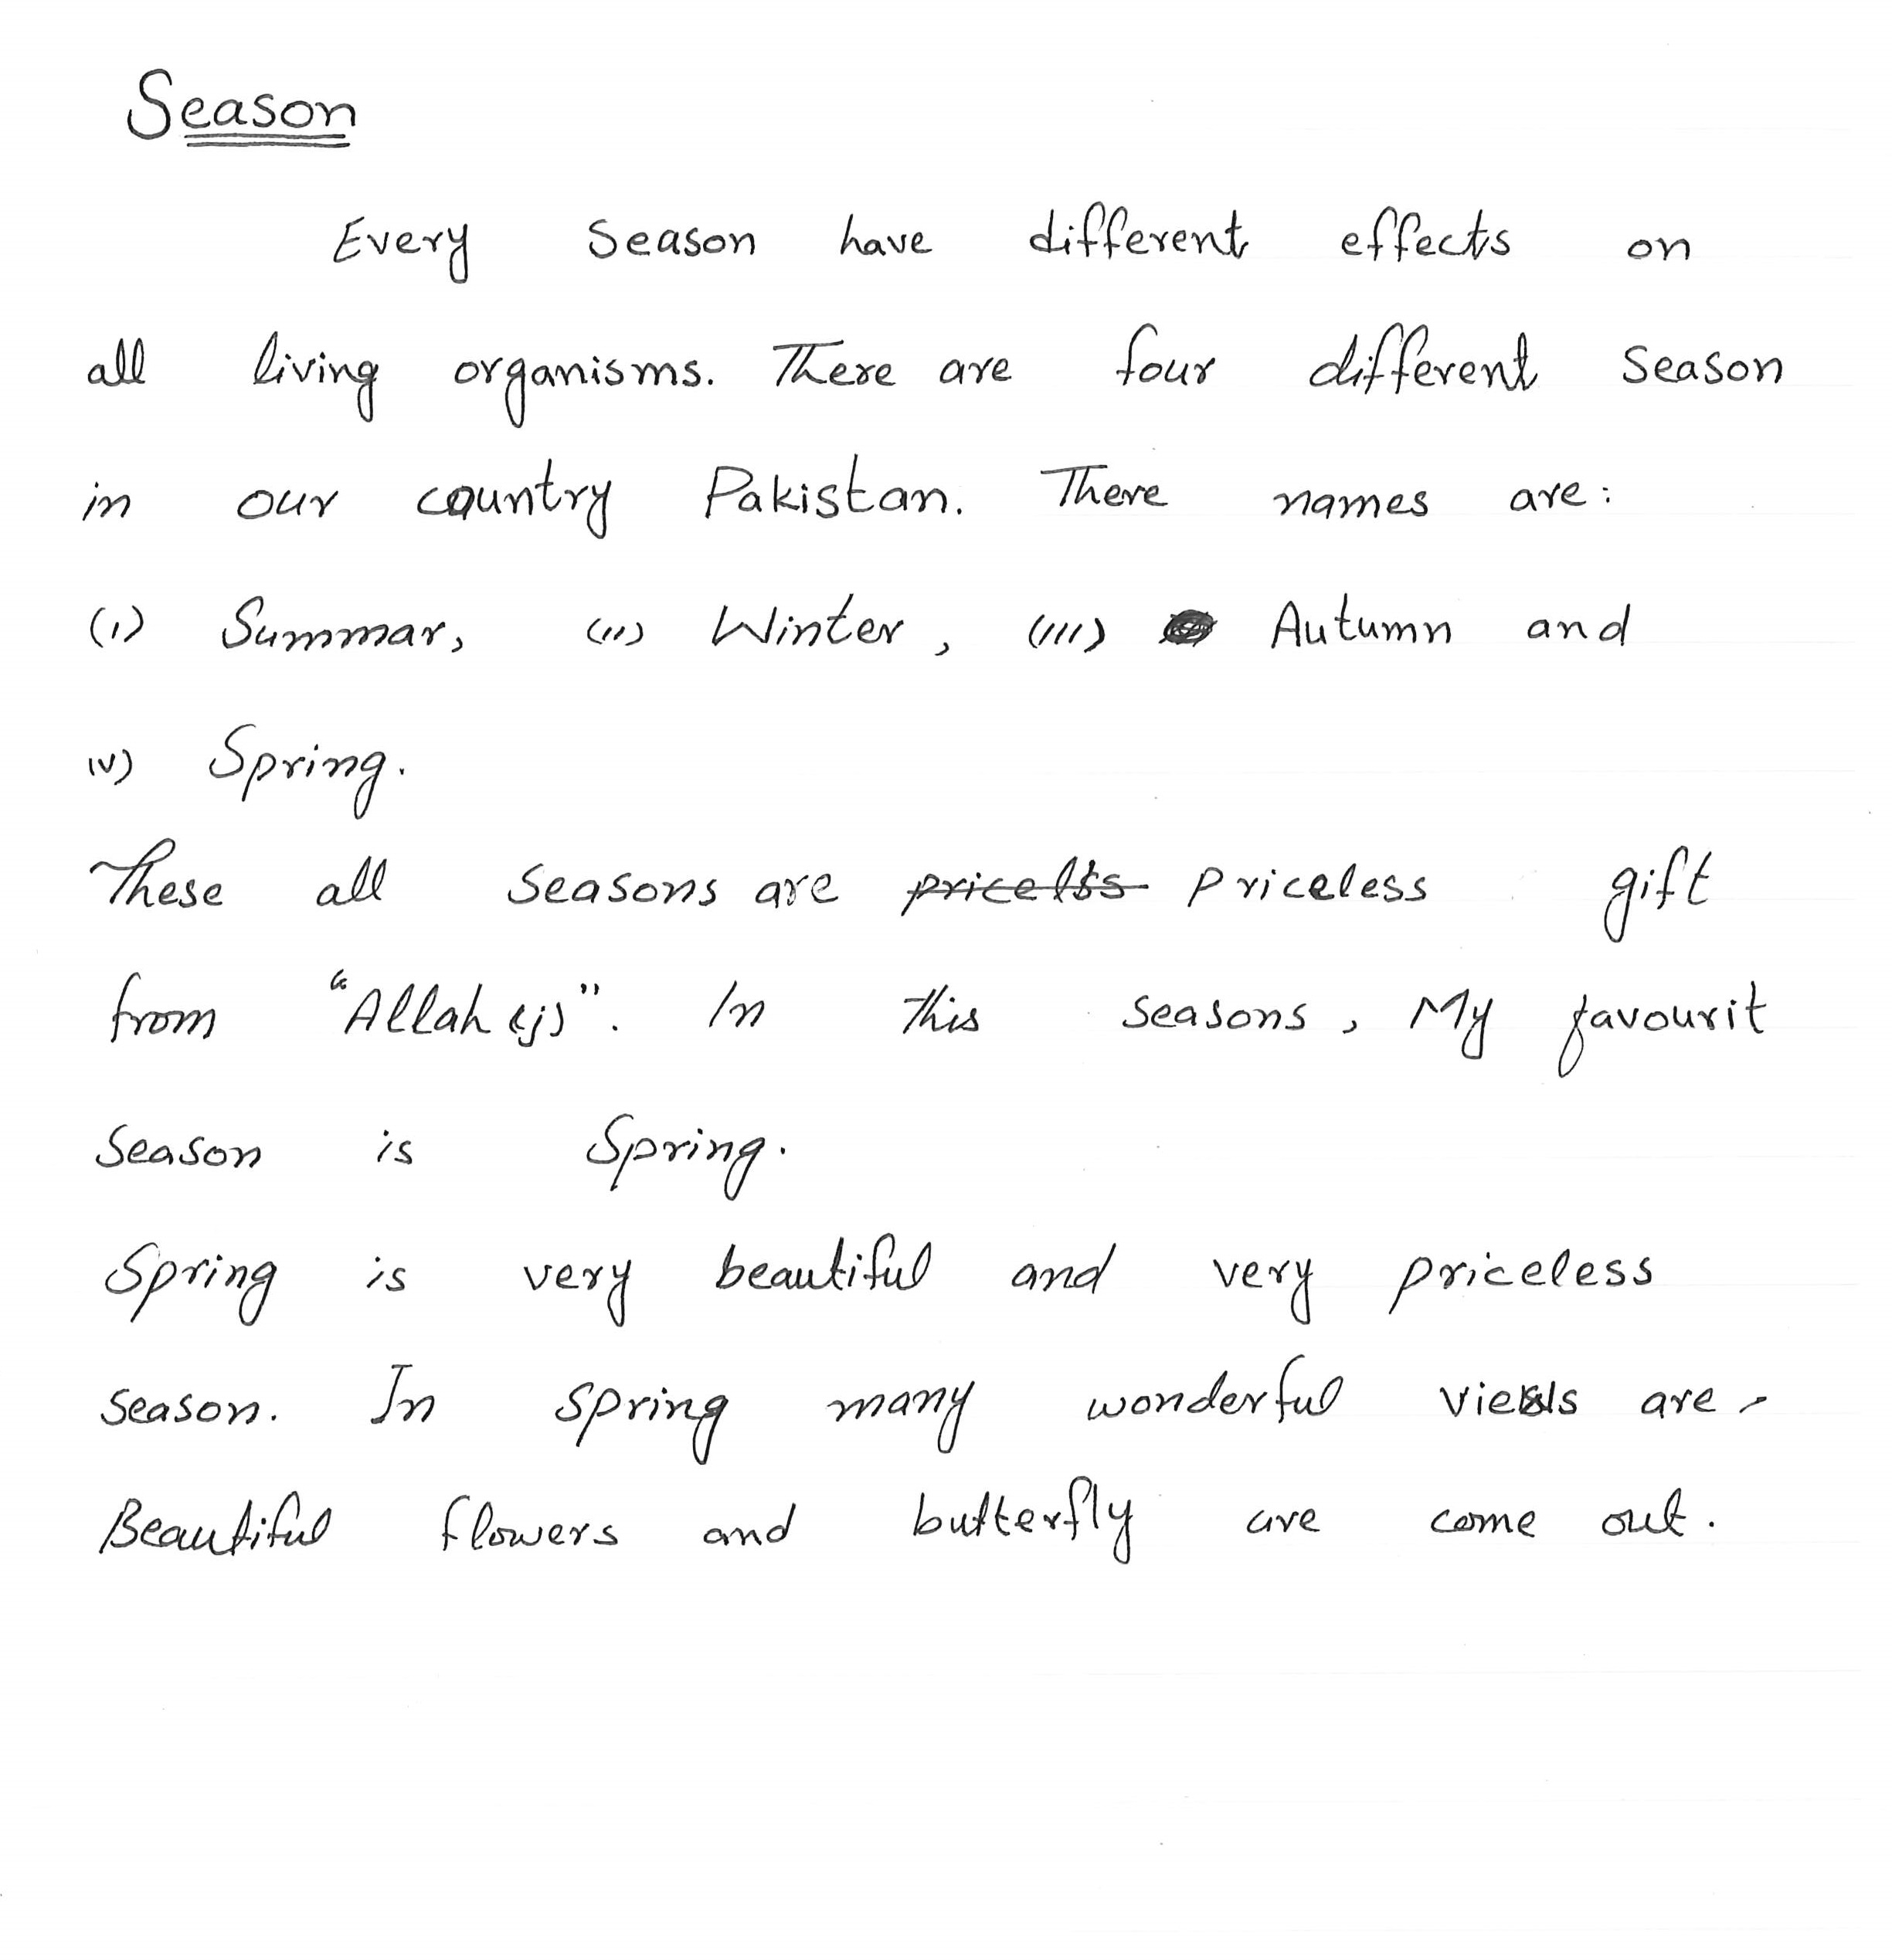 Season
Every Season have different effects on
all living organisms. There are four different Season
in our country Pakistan. There names are:
(i) Summar, (ii) Winter, (iii) Autumn and
iv) Spring.
These all seasons are priceless gift
from "Allah (j)". In this seasons, My favourit
Season is Spring.
Spring is very beautiful and very priceless
season. In spring many wonderful views are.
Beautiful flowers and butterfly are come out.